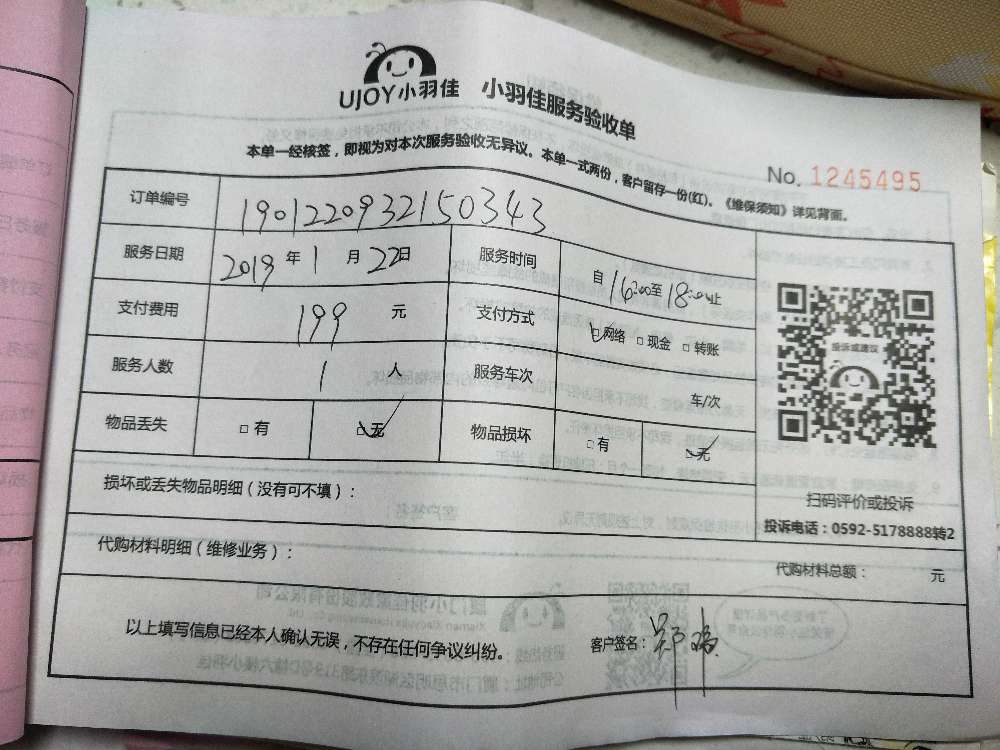 UJOY小羽佳 小羽佳服务验收单
本单一经核签，即视为对本次服务验收无异议。本单一式两份，客户留存一份(红)。《维保须知》详见背面。
No. 1245495
订单编号 1901220932150343
服务日期 2019 年 1 月 22日 服务时间 自 16:00至 18:00止
支付费用 199 元 支付方式 ☑网络 □现金 □转账
服务人数 1 人 服务车次 车/次
物品丢失 □有 ☑无 物品损坏 □有 ☑无
投诉或建议
扫码评价或投诉
投诉电话：0592-5178888转2
损坏或丢失物品明细（没有可不填）：
代购材料明细（维修业务）： 代购材料总额： 元
以上填写信息已经本人确认无误，不存在任何争议纠纷。 客户签名：